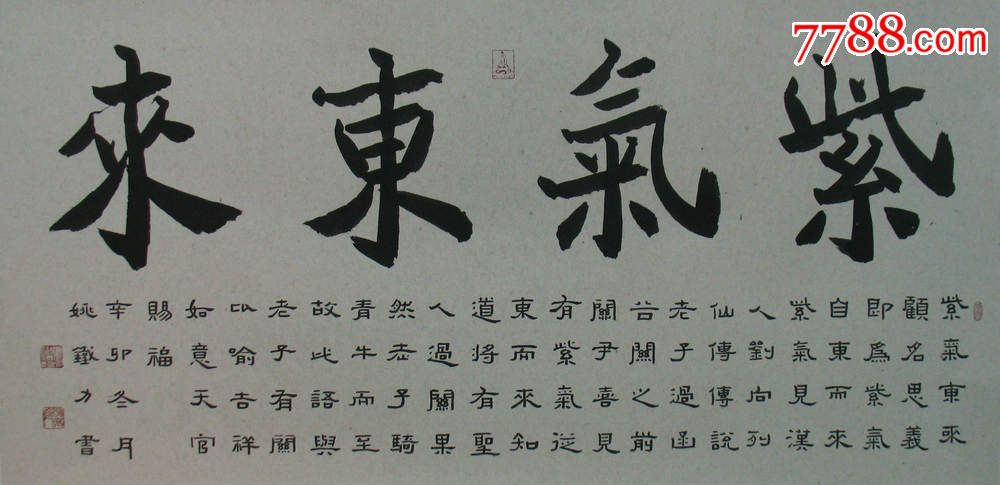 7788.com
紫氣東來
紫氣東來
顧名思義
即為紫氣
自東而來
紫氣見漢
人劉向列
仙傳傳說
老子過函
谷關之前
關尹喜見
有紫氣從
東而來知
道將有聖
人過關果
然老子騎
青牛而至
故此語與
老子有關
以喻吉祥
如意天官
賜福
辛卯冬月
姚鐵力書